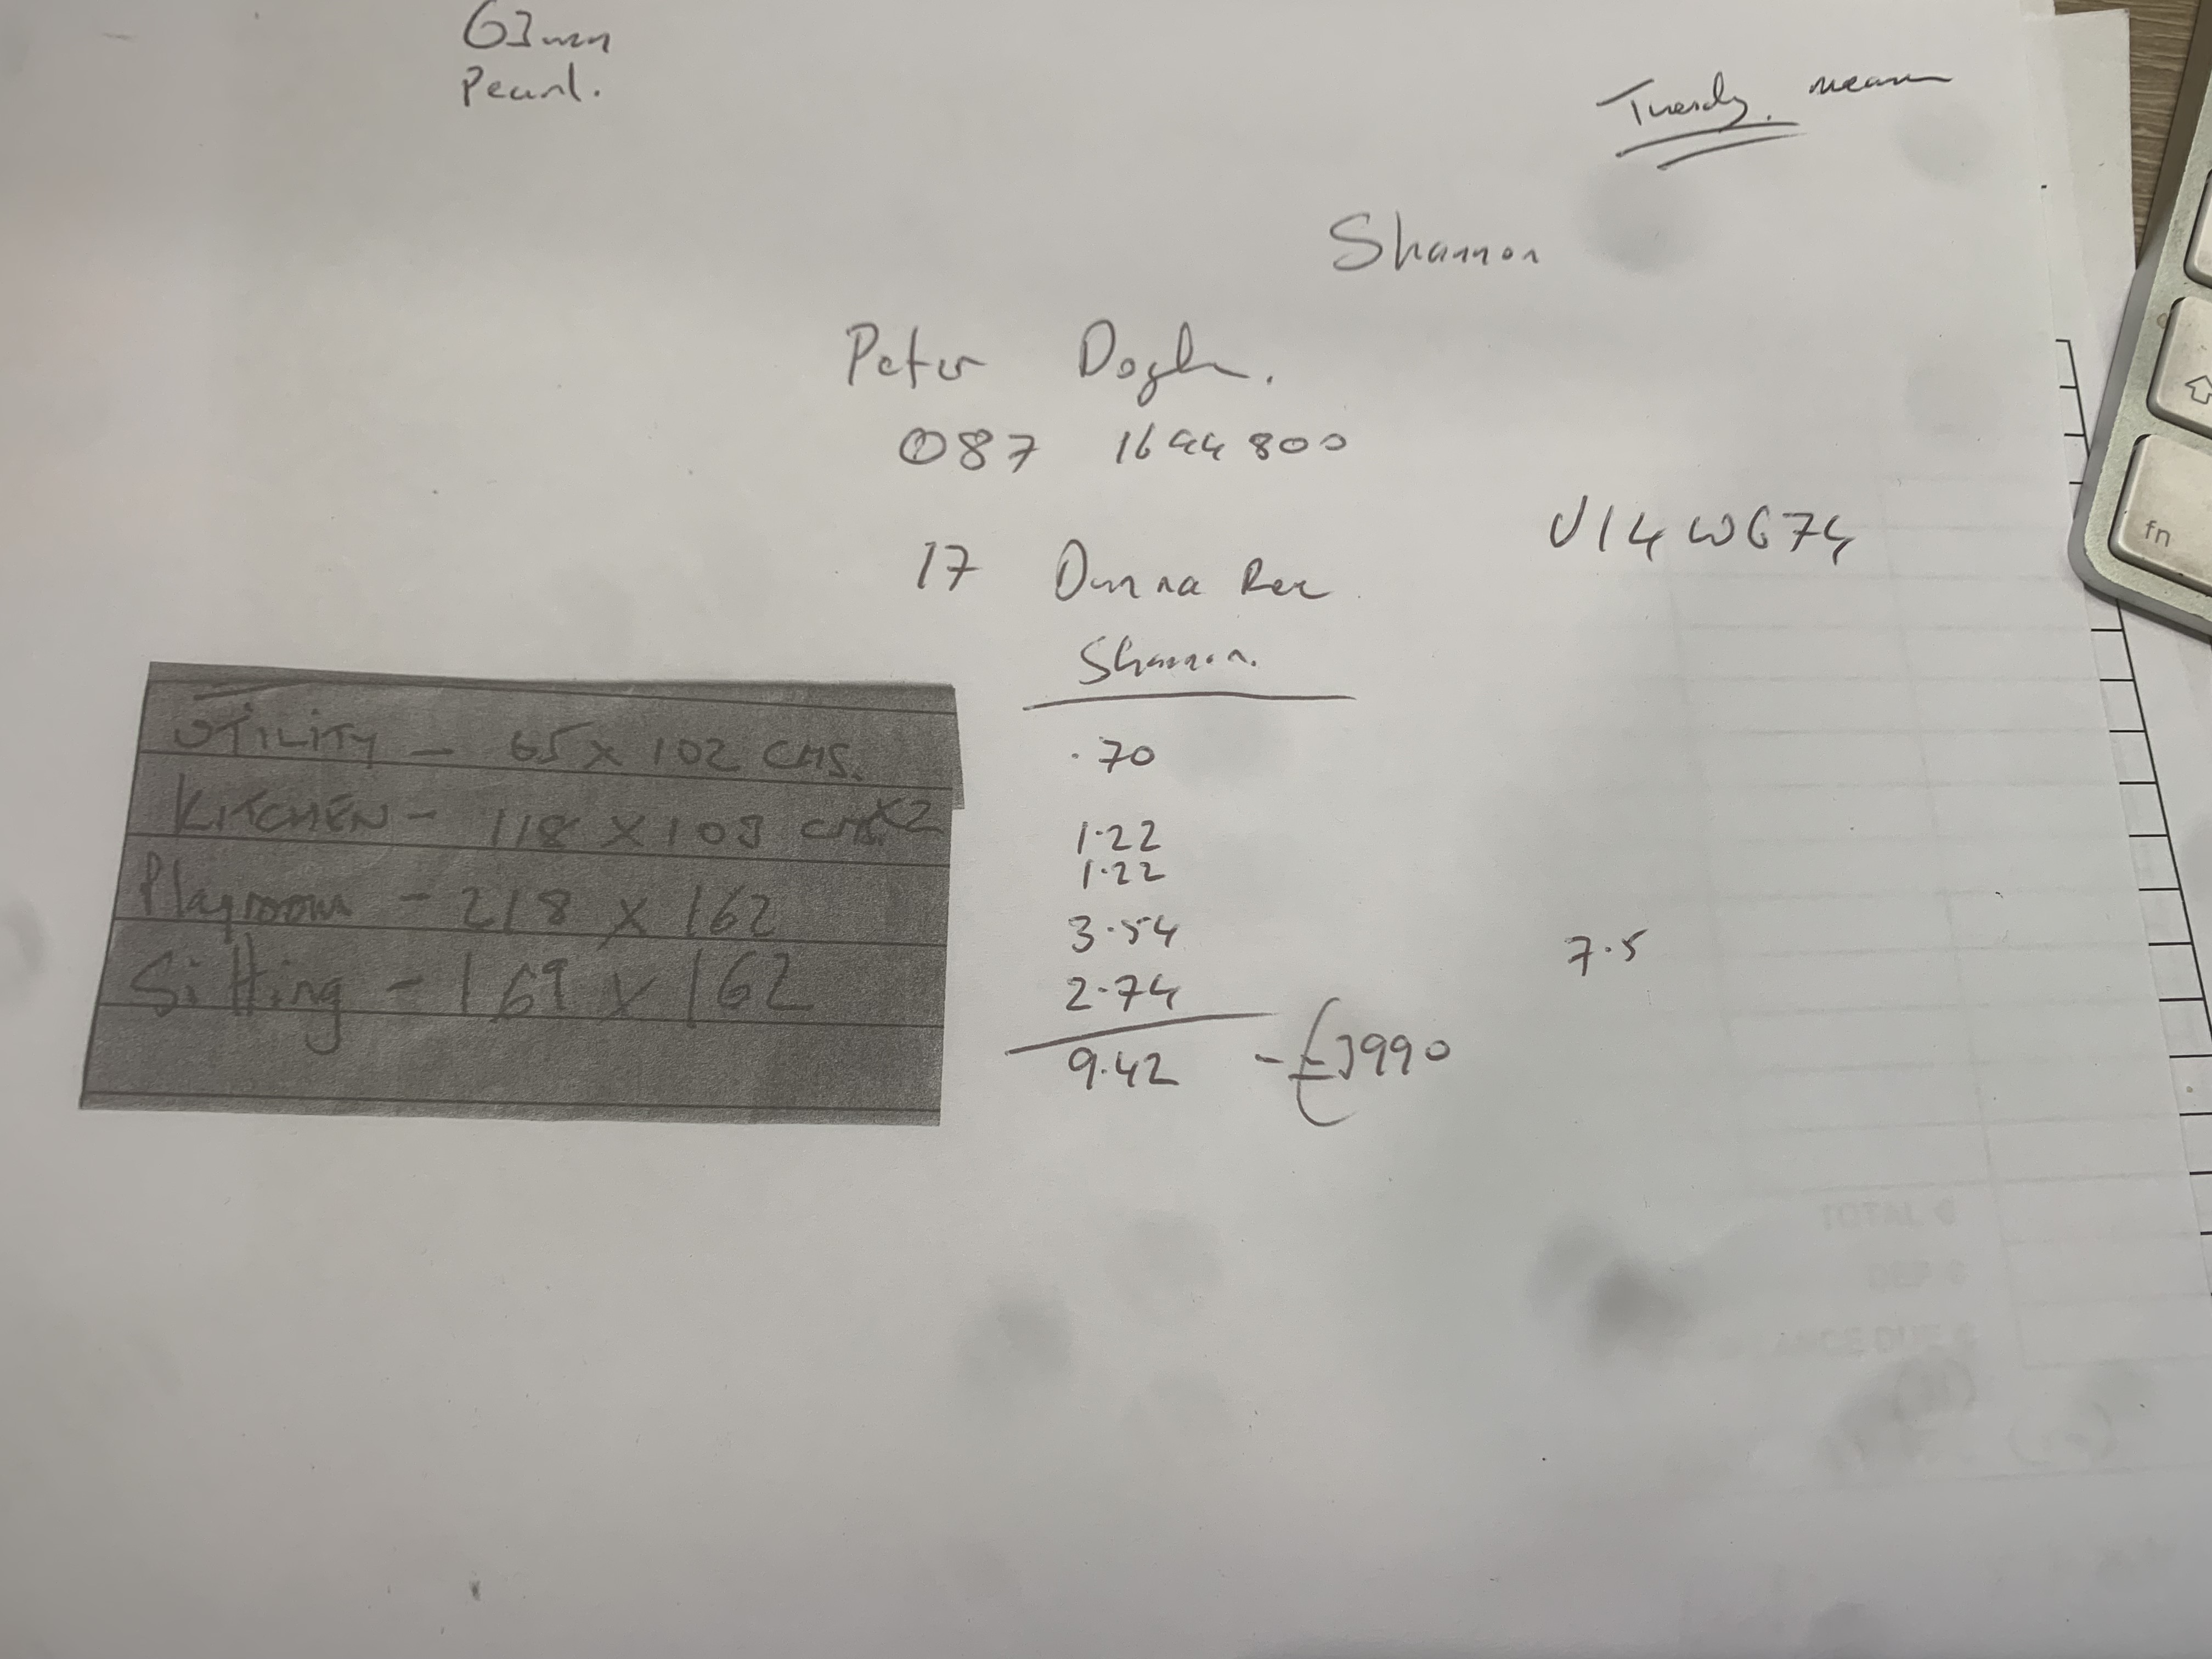 63mm
Pearl.
Tuesdy. mean
Shannon
Peter
087 1644800
V14 W674
17 Dunna Ree
Shannon.
UTILITY - 65 x 102 CMS.
KITCHEN - 118 X 103 CMS. X2
Playroom - 218 x 162
Sitting - 169 x 162
.70
1.22
1.22
3.54
2.74
9.42 - €3990
7.5
fn
TOTAL €